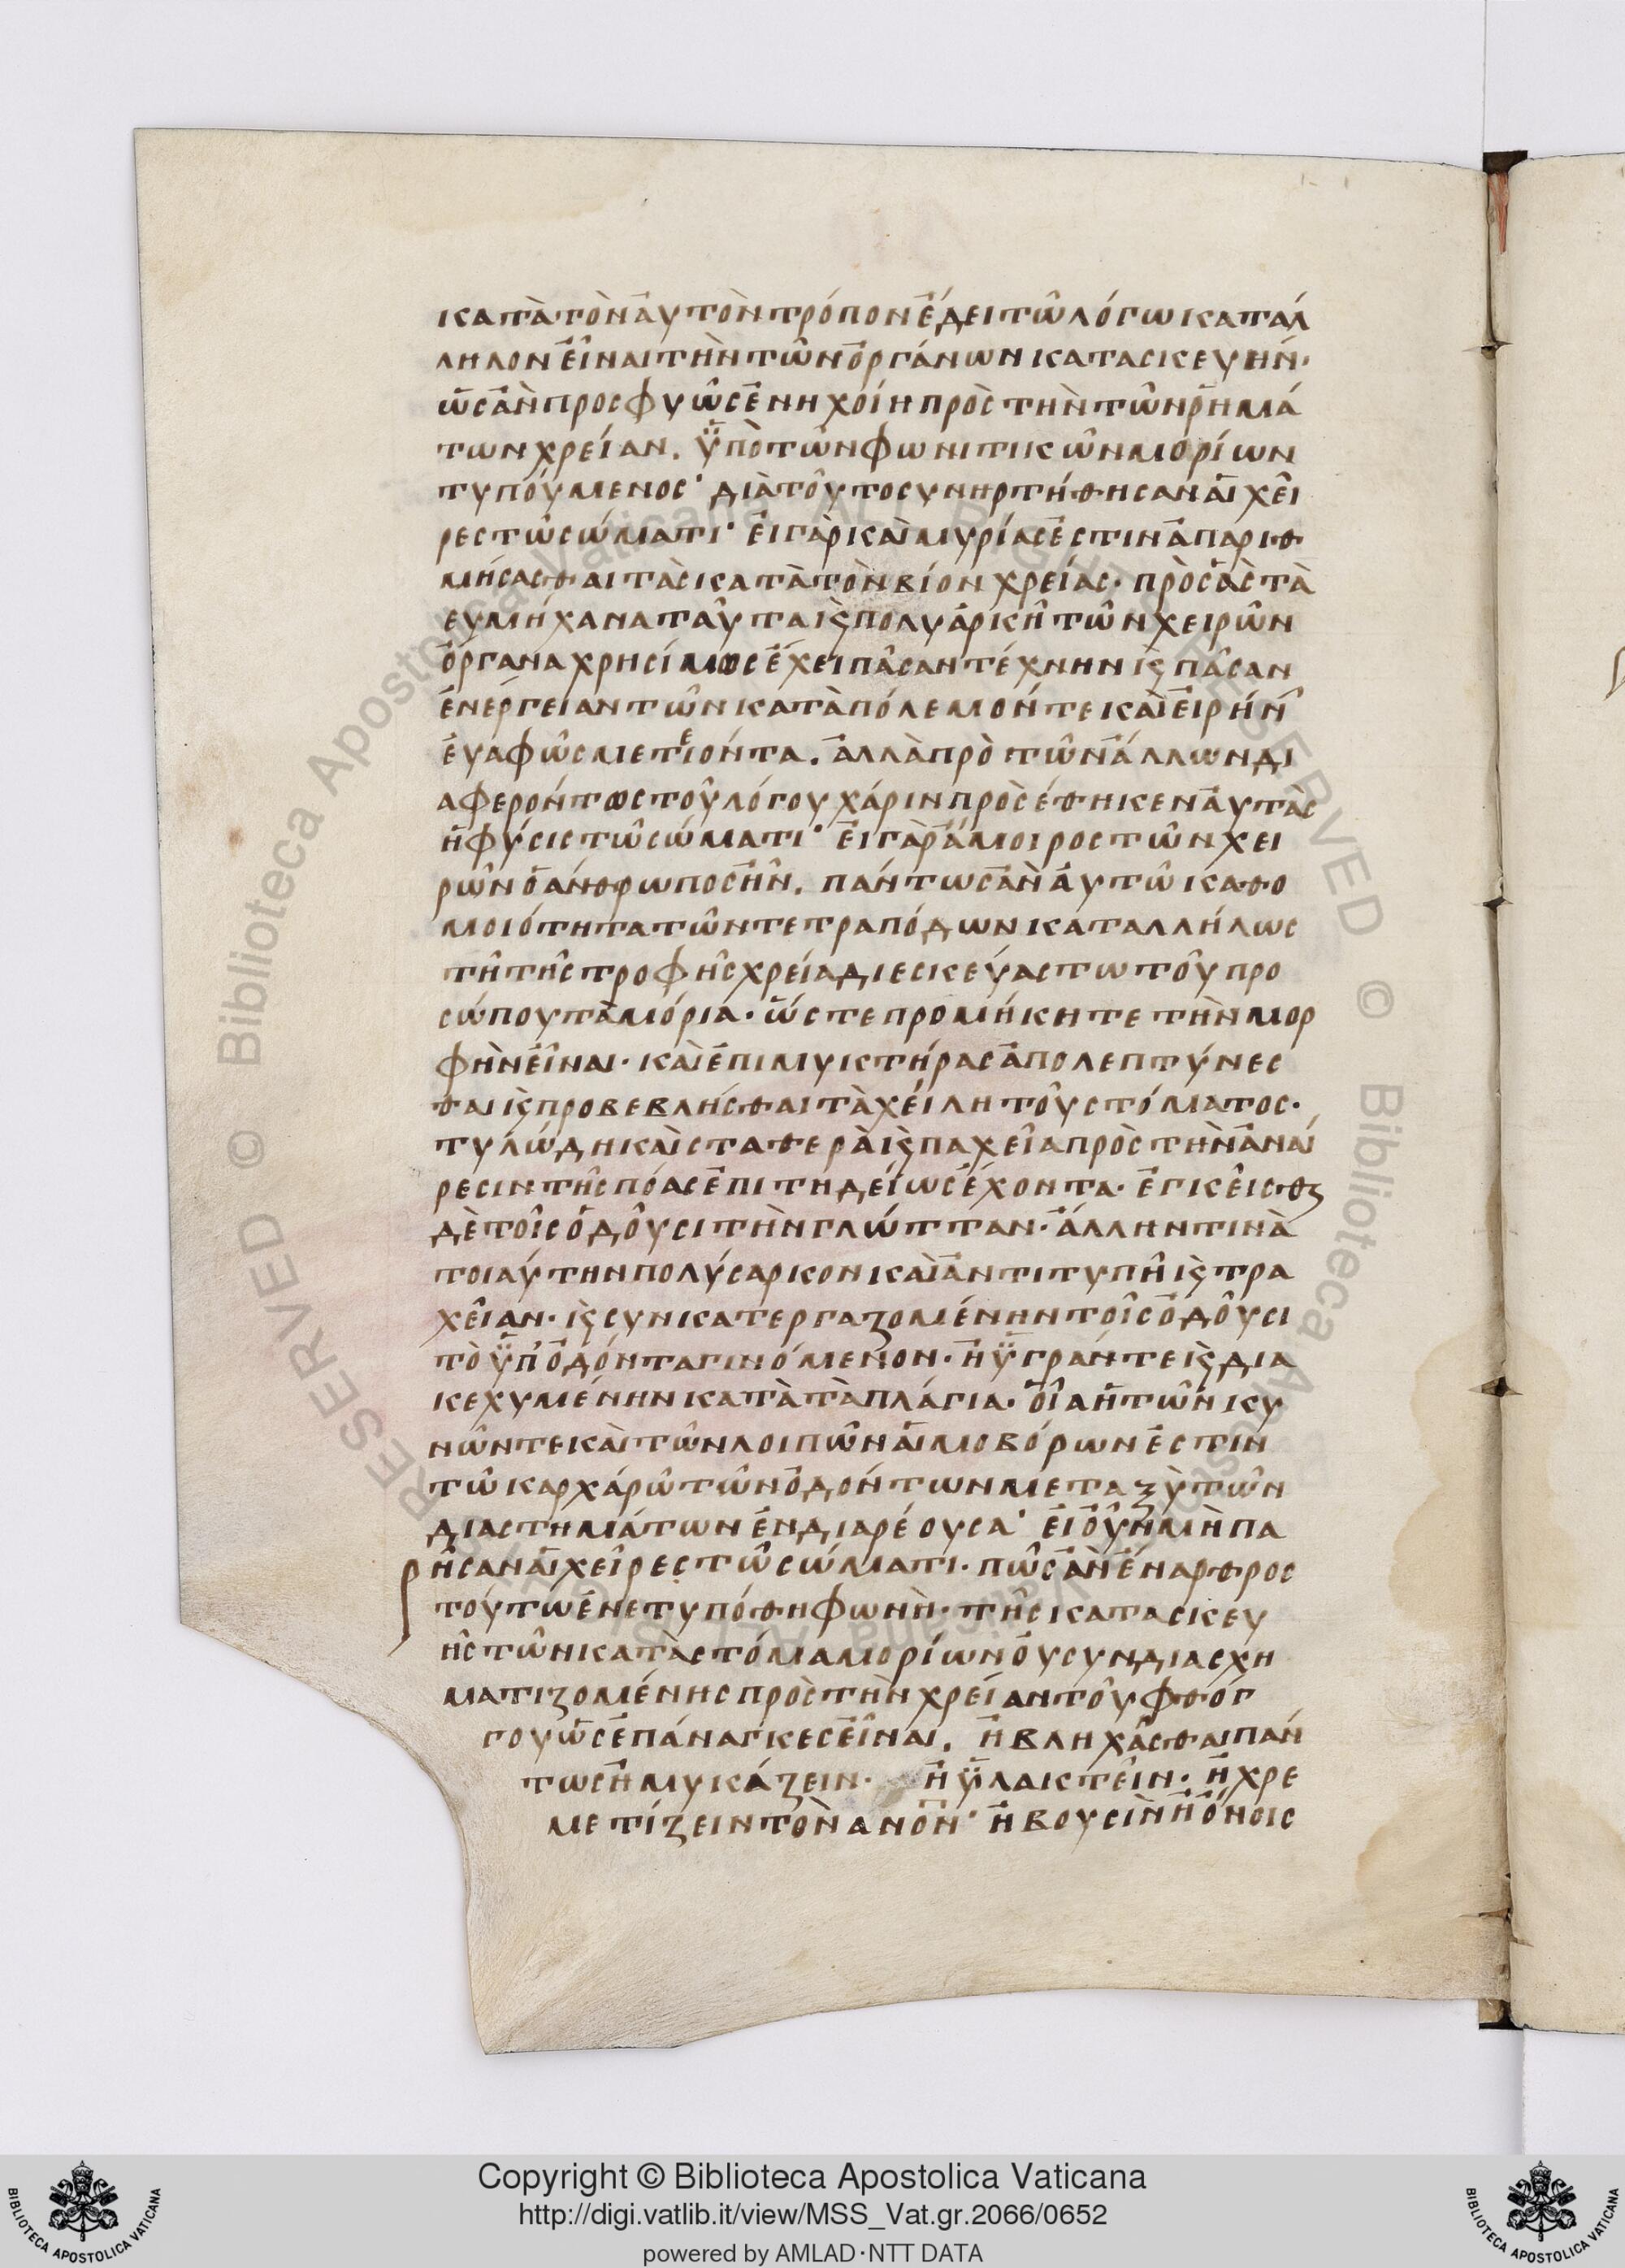 κατὰ τὸν αὐτὸν τρόπον ἔδει τῶ λόγω καταλ
ληλον εἶναι τὴν τῶν ὀργάνων κατασκευήν·
ὡς ἂν προσφυῶς ἐνηχοίη πρὸς τὴν τῶν ῥημά
των χρείαν. ὑπὸ τῶν φωνιτικῶν μορίων
τυπούμενος· διὰ τοῦτο συνηρτήθησαν αἱ χεῖ
ρες τῶ σώματι· εἰ γὰρ καὶ μυρίας ἐστιν ἀπαριθ
μήσασθαι τὰς κατὰ τὸν βίον χρείας· πρὸς ἃς τὰ
ευμήχανα ταῦτα ϗ πολυάρκῆ τῶν χειρῶν
ὄργανα χρησίμως ἔχει πᾶσαν τέχνην ϗ πᾶσαν
ἐνέργειαν τῶν κατὰ πόλεμόν τε καὶ εἰρήν
ἐυαφῶς μετιεόντα. ἀλλὰ πρὸ τῶν ἄλλων δι
αφερόντως τοῦ λόγου χάριν προσέθηκεν αὐτὰς
ἡ φύσις τῶ σώματι· εἰ γὰρ ἄμοιρος τῶν χει
ρῶν ὁ άνθρωπος ἦν. πάντως ἂν ἀυτῶ καθο
μοιότητα τῶν τετραπόδων καταλλήλως
τῆ τῆς τροφῆς χρεία διεσκεύαστω τοῦ προ
σώπου τὰ μόρια· ὥστε προμήκη τε τὴν μορ
φὴν εἶναι· καὶ ἐπι μυκτήρας ἀπολεπτύνεσ
θαι ϗ προβεβλῆσθαι τὰ χείλη τοῦ στόματος·
τυλώδη καὶ σταθερὰ ϗ παχεῖα πρὸς τὴν ἀναί
ρεσιν τῆς πόας ἐπιτηδείως ἔχοντα· ἐγκεῖσθϗ
δὲ τοῖς ὁδοῦσι τὴν γλώτταν· ἄλλην τινὰ
τοιαύτην πολύσαρκον καὶ ἀντιτυπῆ ϗ τρα
χεῖαν· ϗ συνκατεργαζομένην τοῖς ὀδοῦσι
τὸ ὑπ' ὀδόντα γινόμενον· ἢ ὑγράν τε ϗ δια
κεχυμένην κατὰ τὰ πλάγια· οἵα ἡ τῶν κυ
νῶν τε καὶ τῶν λοιπῶν αἱμοβόρων ἐστιν
τῶ καρχάρῶ τῶν ὀδόντων μεταξὺ τῶν
διαστημάτων ἐνδιαρέουσα· εἰ οὖν μὴ πα
ρῆσαν αἱ χεῖρες τῶ σώματι· πῶς ἂν ἔναρθρος
τούτω ἐνετυπόθη φωνὴ· τῆς κατασκευ
ῆς τῶν κατὰ στόμα μορίων ὀυ συνδιασχη
ματιζομένης πρὸς τὴν χρείαν τοῦ φθόγ
γου ὡς ἐπάναγκες εἶναι. ἢ βληχᾶσθαι πάν
τως ἢ μυκάζειν· ἢ ὑλακτεῖν· ἢ χρε
μετίζειν τὸν ἀνον· ἢ βουσὶν ἢ ὄνοις